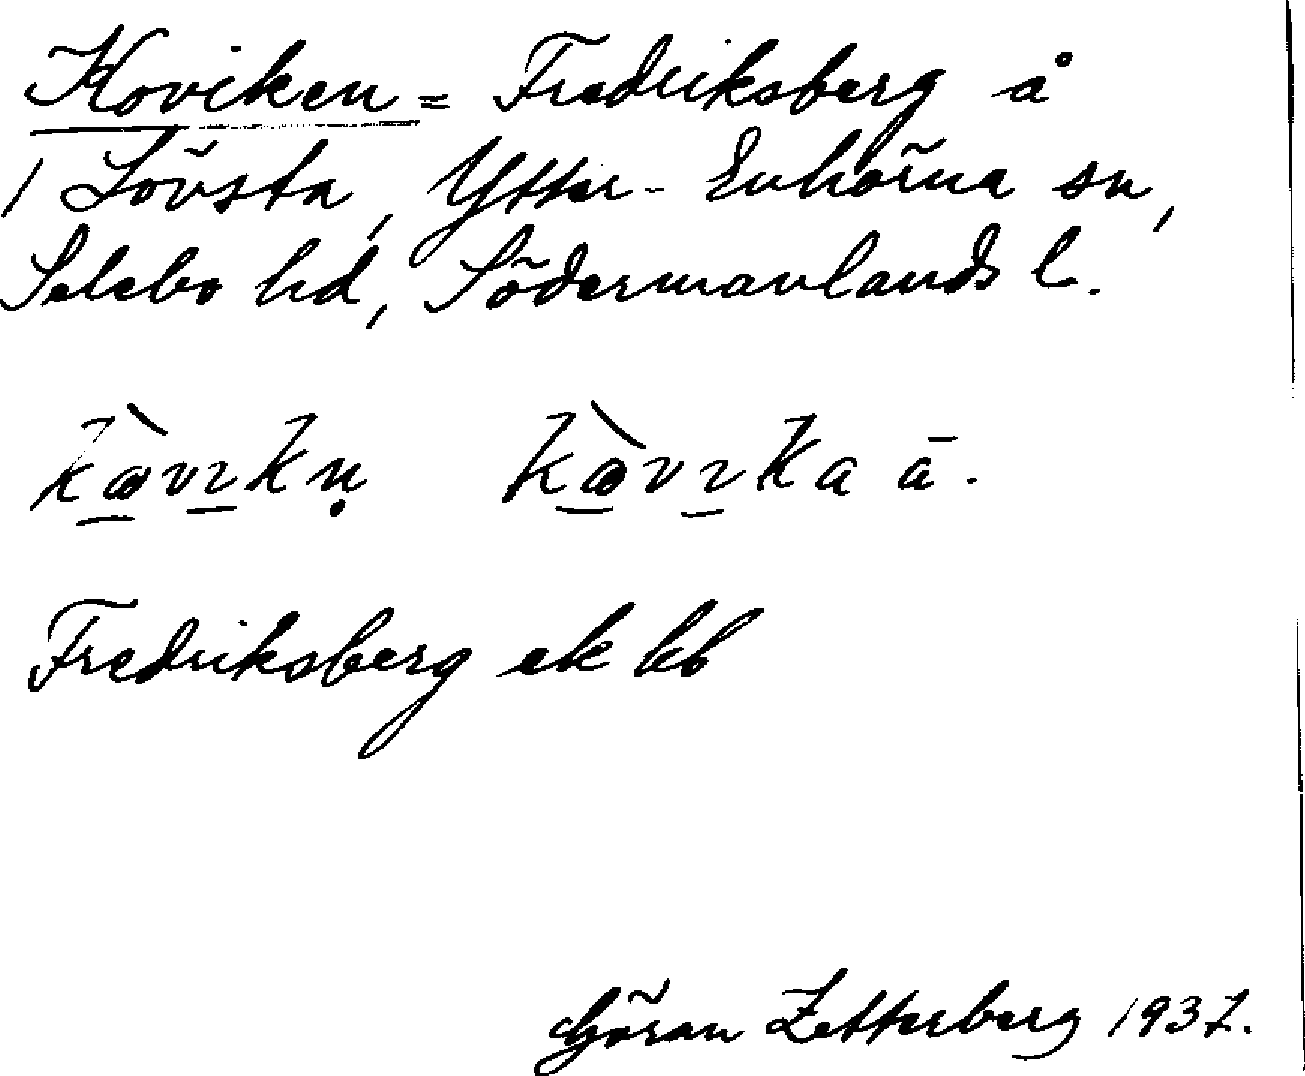 Koviken = Fredriksberg å
1 Lövsta, Ytter-Enhörna sn,
Selebo hd, Södermanlands l.
Fredriksberg ek kb
Göran Zetterberg 1937.